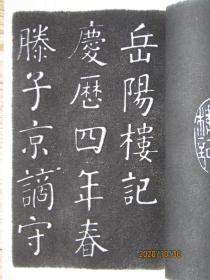 岳陽樓記
慶歷四年春
滕子京謫守
2020/10/06